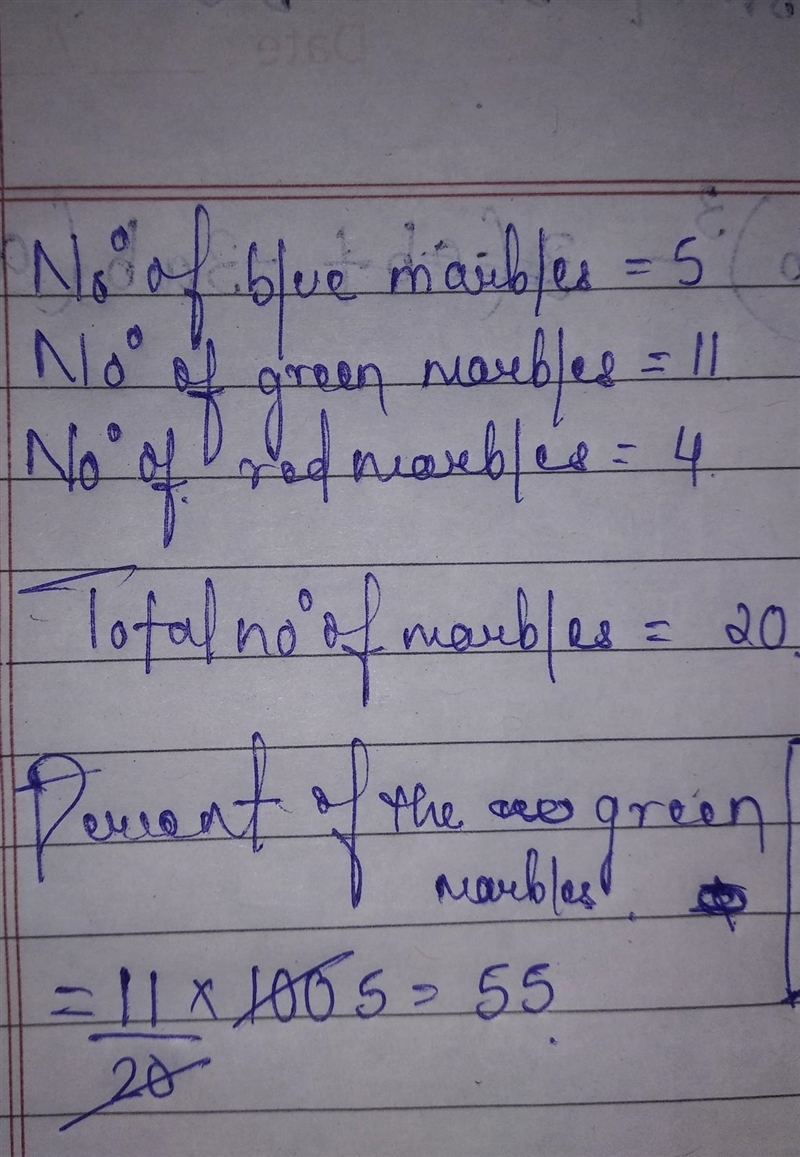 No° of blue marbles = 5
No° of green marbles = 11
No° of red marbles = 4.
Total no° of marbles = 20.
Percent of the green
marbles.
= 11 x 100 5 = 55.
20